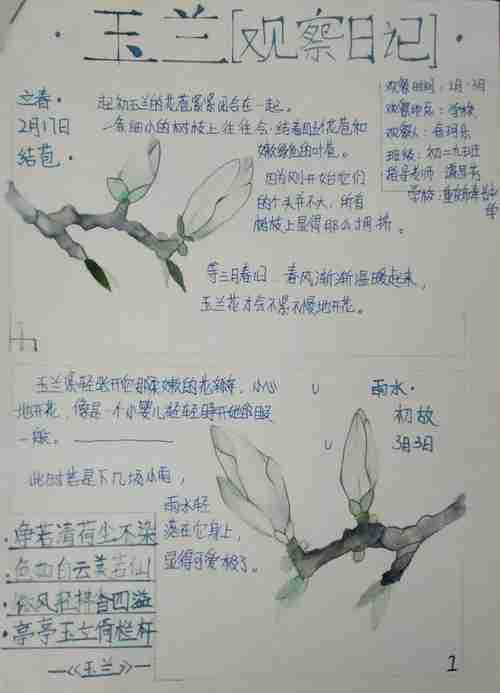 玉兰[观察日记]
立春·
2月17日
结苞·
起初玉兰的花苞紧紧闭合在一起。
一条细小的树枝上往往会结着四个花苞和
嫩绿色的叶苞。
因为刚开始它们
的个头并不大,所有
树枝上显得那么拥挤。
观察时间:2月-3月
观察地点:学校
观察人:
班级:初二九班
指导老师:
学校:
等三月春归,春风渐渐温暖起来,
玉兰花才会不紧不慢地开花。
玉兰轻轻张开它那柔嫩的花瓣,
地开花,像是一个小婴儿轻轻睁开她的眼
一般。
雨水·
初放
3月3日
此时若是下几场小雨,
雨水轻
落在它身上,
显得可爱极了。
·净若清荷尘不染
·色如白云美若仙
·微风轻拌香四溢
·亭亭玉立倚栏杆
—《玉兰》—
1